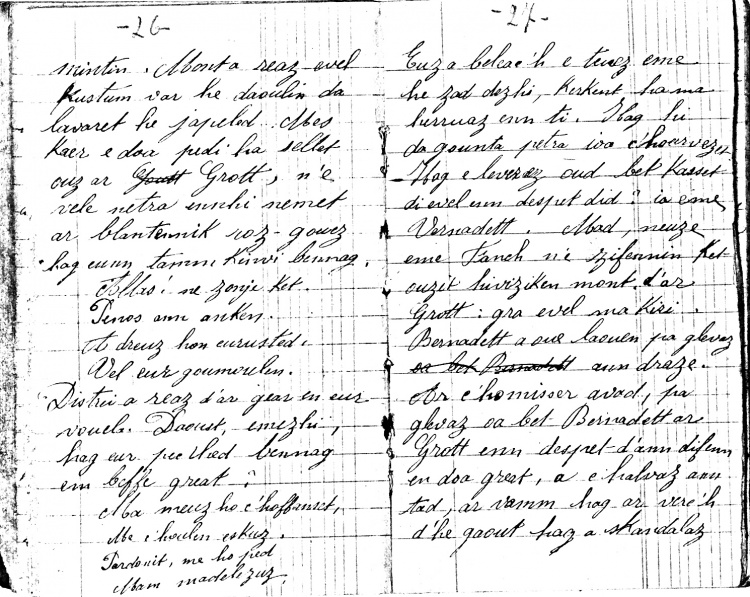 -26-
mintin. Mont a reaz evel
kustum var he daoulin da
lavaret he japeled. Mes
kaer e doa pedi ha sellet
ouz ar Grott, n'e
vele netra ennhi nemet
ar blantennik roz-gouez
hag eunn tamm kinvi bennag.
Allas! ne zonje ket.
Penos ann anken.
A dreuz hon eurusted.
Vel eur goumoulen.
Distrei a reaz d'ar gear en eur
vouela. Daoust, emezhi,
hag eur pec'hed bennag
em beffe great?
Ma meuz ho c'hoffanset,
Me c'houlen eskuz.
Pardonit, me ho ped
Mam madelezuz.
-27-
Euz a beleac'h e teuez eme
he zad dezhi, kerkent ha ma
lurruaz enn ti. Hag hi
da gounta petra ioa c'hoarvezet.
Hag e leverez oud bet kasset
di evel enn despet did? ia eme
Vernadett. Mad, neuze
eme Fanch n'e zifennin ket
ouzit hiviziken mont d'ar
Grott: gra evel ma kiri.
Bernadett a oue laouen pa glevaz
oa bet Bernadett ann draze.
Ar c'homisser avad, pa
glevaz oa bet Bernadett ar
Grott enn despet d'ann difenn
en doa great, a c'halvaz ann
tad, ar vamm hag ar verc'h
d'he gaout hag a skandalaz